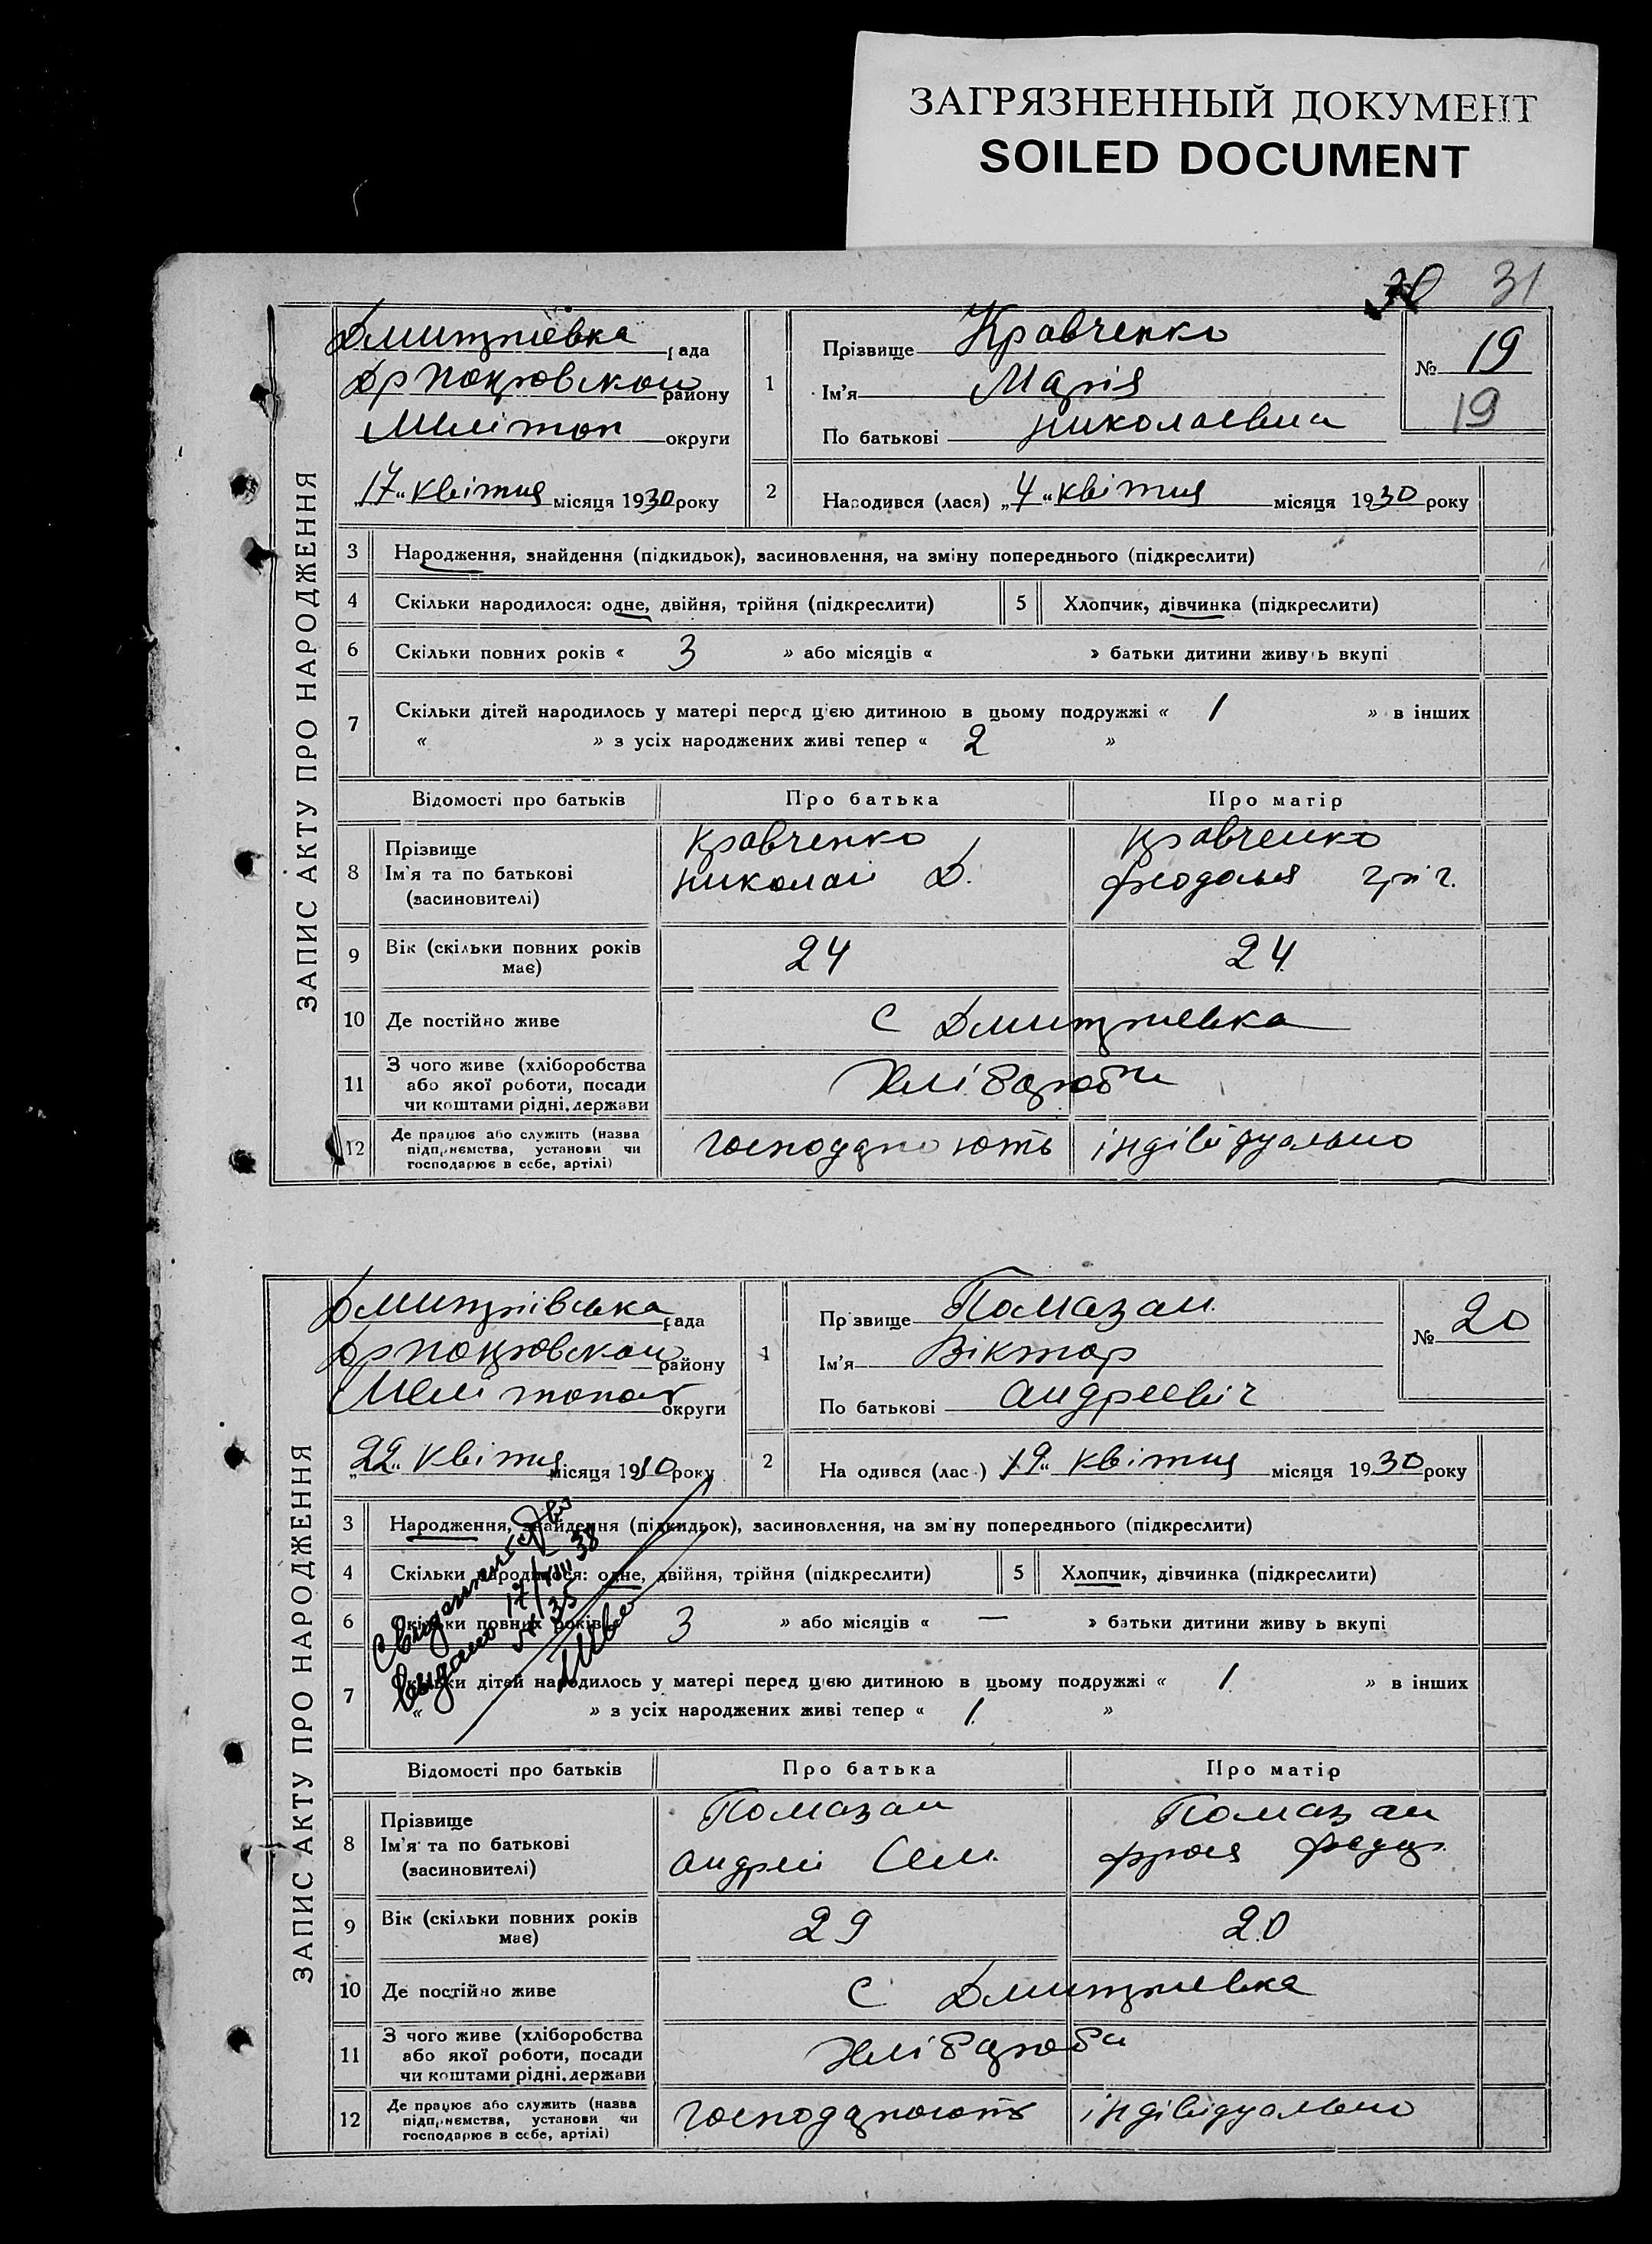 ЗАГРЯЗНЕННЫЙ ДОКУМЕНТ
SOILED DOCUMENT
30 31
ЗАПИС АКТУ ПРО НАРОДЖЕННЯ
Дмитріевка рада
Др Покровской району
Мелітоп округи
"17" квітня місяця 1930 року
1
Прізвище Кравченко
Ім'я Марія
По батькові Николаевна
№ 19
19
2
Народився (лася) "4" квітня місяця 1930 року
3 Народження, знайдення (підкидьок), засиновлення, на зміну попереднього (підкреслити)
4 Скільки народилося: одне, двійня, трійня (підкреслити)
5 Хлопчик, дівчинка (підкреслити)
6 Скільки повних років « 3 » або місяців « » батьки дитини живуть вкупі
7 Скільки дітей народилось у матері перед цією дитиною в цьому подружжі « 1 » в інших
« » з усіх народжених живі тепер « 2 »
Відомості про батьків Про батька Про матір
8 Прізвище
Ім'я та по батькові
(засиновителі)
Кравченко
Николай Д.
Кравченко
Феодосья Григ.
9 Вік (скільки повних років
має)
24 24
10 Де постійно живе с Дмитриевка
11 З чого живе (хліборобства
або якої роботи, посади
чи коштами рідні, держави
Хліборобы
12 Де працює або служить (назва
підприємства, установи чи
господарює в себе, артілі)
господарюють індівідуально
ЗАПИС АКТУ ПРО НАРОДЖЕННЯ
Дмитрівська рада
Др Покровской району
Мелитопол округи
"22" квітня місяця 1930 року
1
Прізвище Помазан
Ім'я Віктор
По батькові Андреевіч
№ 20
2
Народився (лась) "19" квітня місяця 1930 року
3 Народження, знайдення (підкидьок), засиновлення, на зміну попереднього (підкреслити)
4 Скільки народилося: одне, двійня, трійня (підкреслити)
5 Хлопчик, дівчинка (підкреслити)
6 Скільки повних років « 3 » або місяців « — » батьки дитини живуть вкупі
7 Скільки дітей народилось у матері перед цією дитиною в цьому подружжі « 1 » в інших
« » з усіх народжених живі тепер « 1 »
выдано 17/VIII 38
№ 35
Відомості про батьків Про батька Про матір
8 Прізвище
Ім'я та по батькові
(засиновителі)
Помазан
Андрей Сем.
Помазан
Федор.
9 Вік (скільки повних років
має)
29 20
10 Де постійно живе с Дмитриевка
11 З чого живе (хліборобства
або якої роботи, посади
чи коштами рідні, держави
Хлібороби
12 Де працює або служить (назва
підприємства, установи чи
господарює в себе, артілі)
господарюють індівідуально